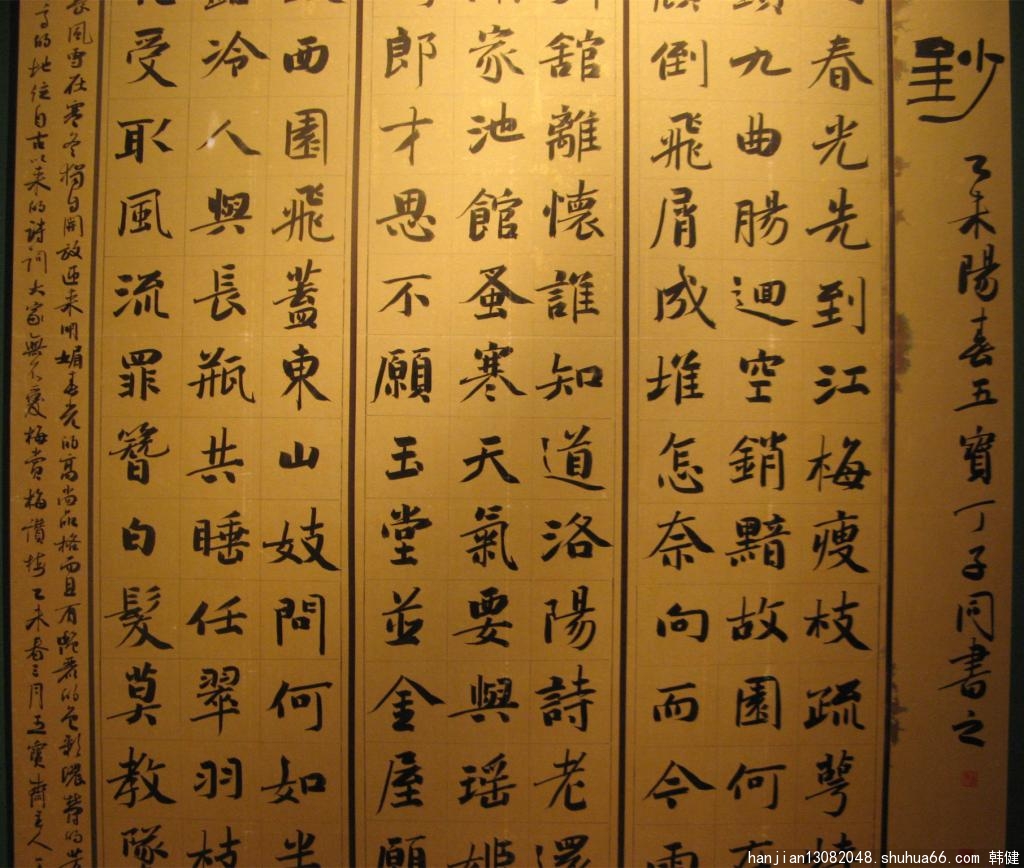 鈔
乙未陽春五寶丁子同書之
春光先到江梅瘦枝疏萼
九曲腸迴空銷黯故園何
倒飛屑成堆怎奈向而今
舘離懷誰知道洛陽詩老還
家池館蚤寒天氣要與瑶姬
郎才思不願玉堂並金屋願
西園飛蓋東山妓問何如半
冷人與長瓶共睡任翠羽枝
受取風流罪簪白髮莫教隊
風雪在寒冬獨自開放迎来明媚春光的高尚品格而且有艷麗的色彩
高的地位自古以来的詩詞大家無不愛梅賞梅讚梅乙未春三月五寶齋主人
hanjian13082048.shuhua66.com 韩健